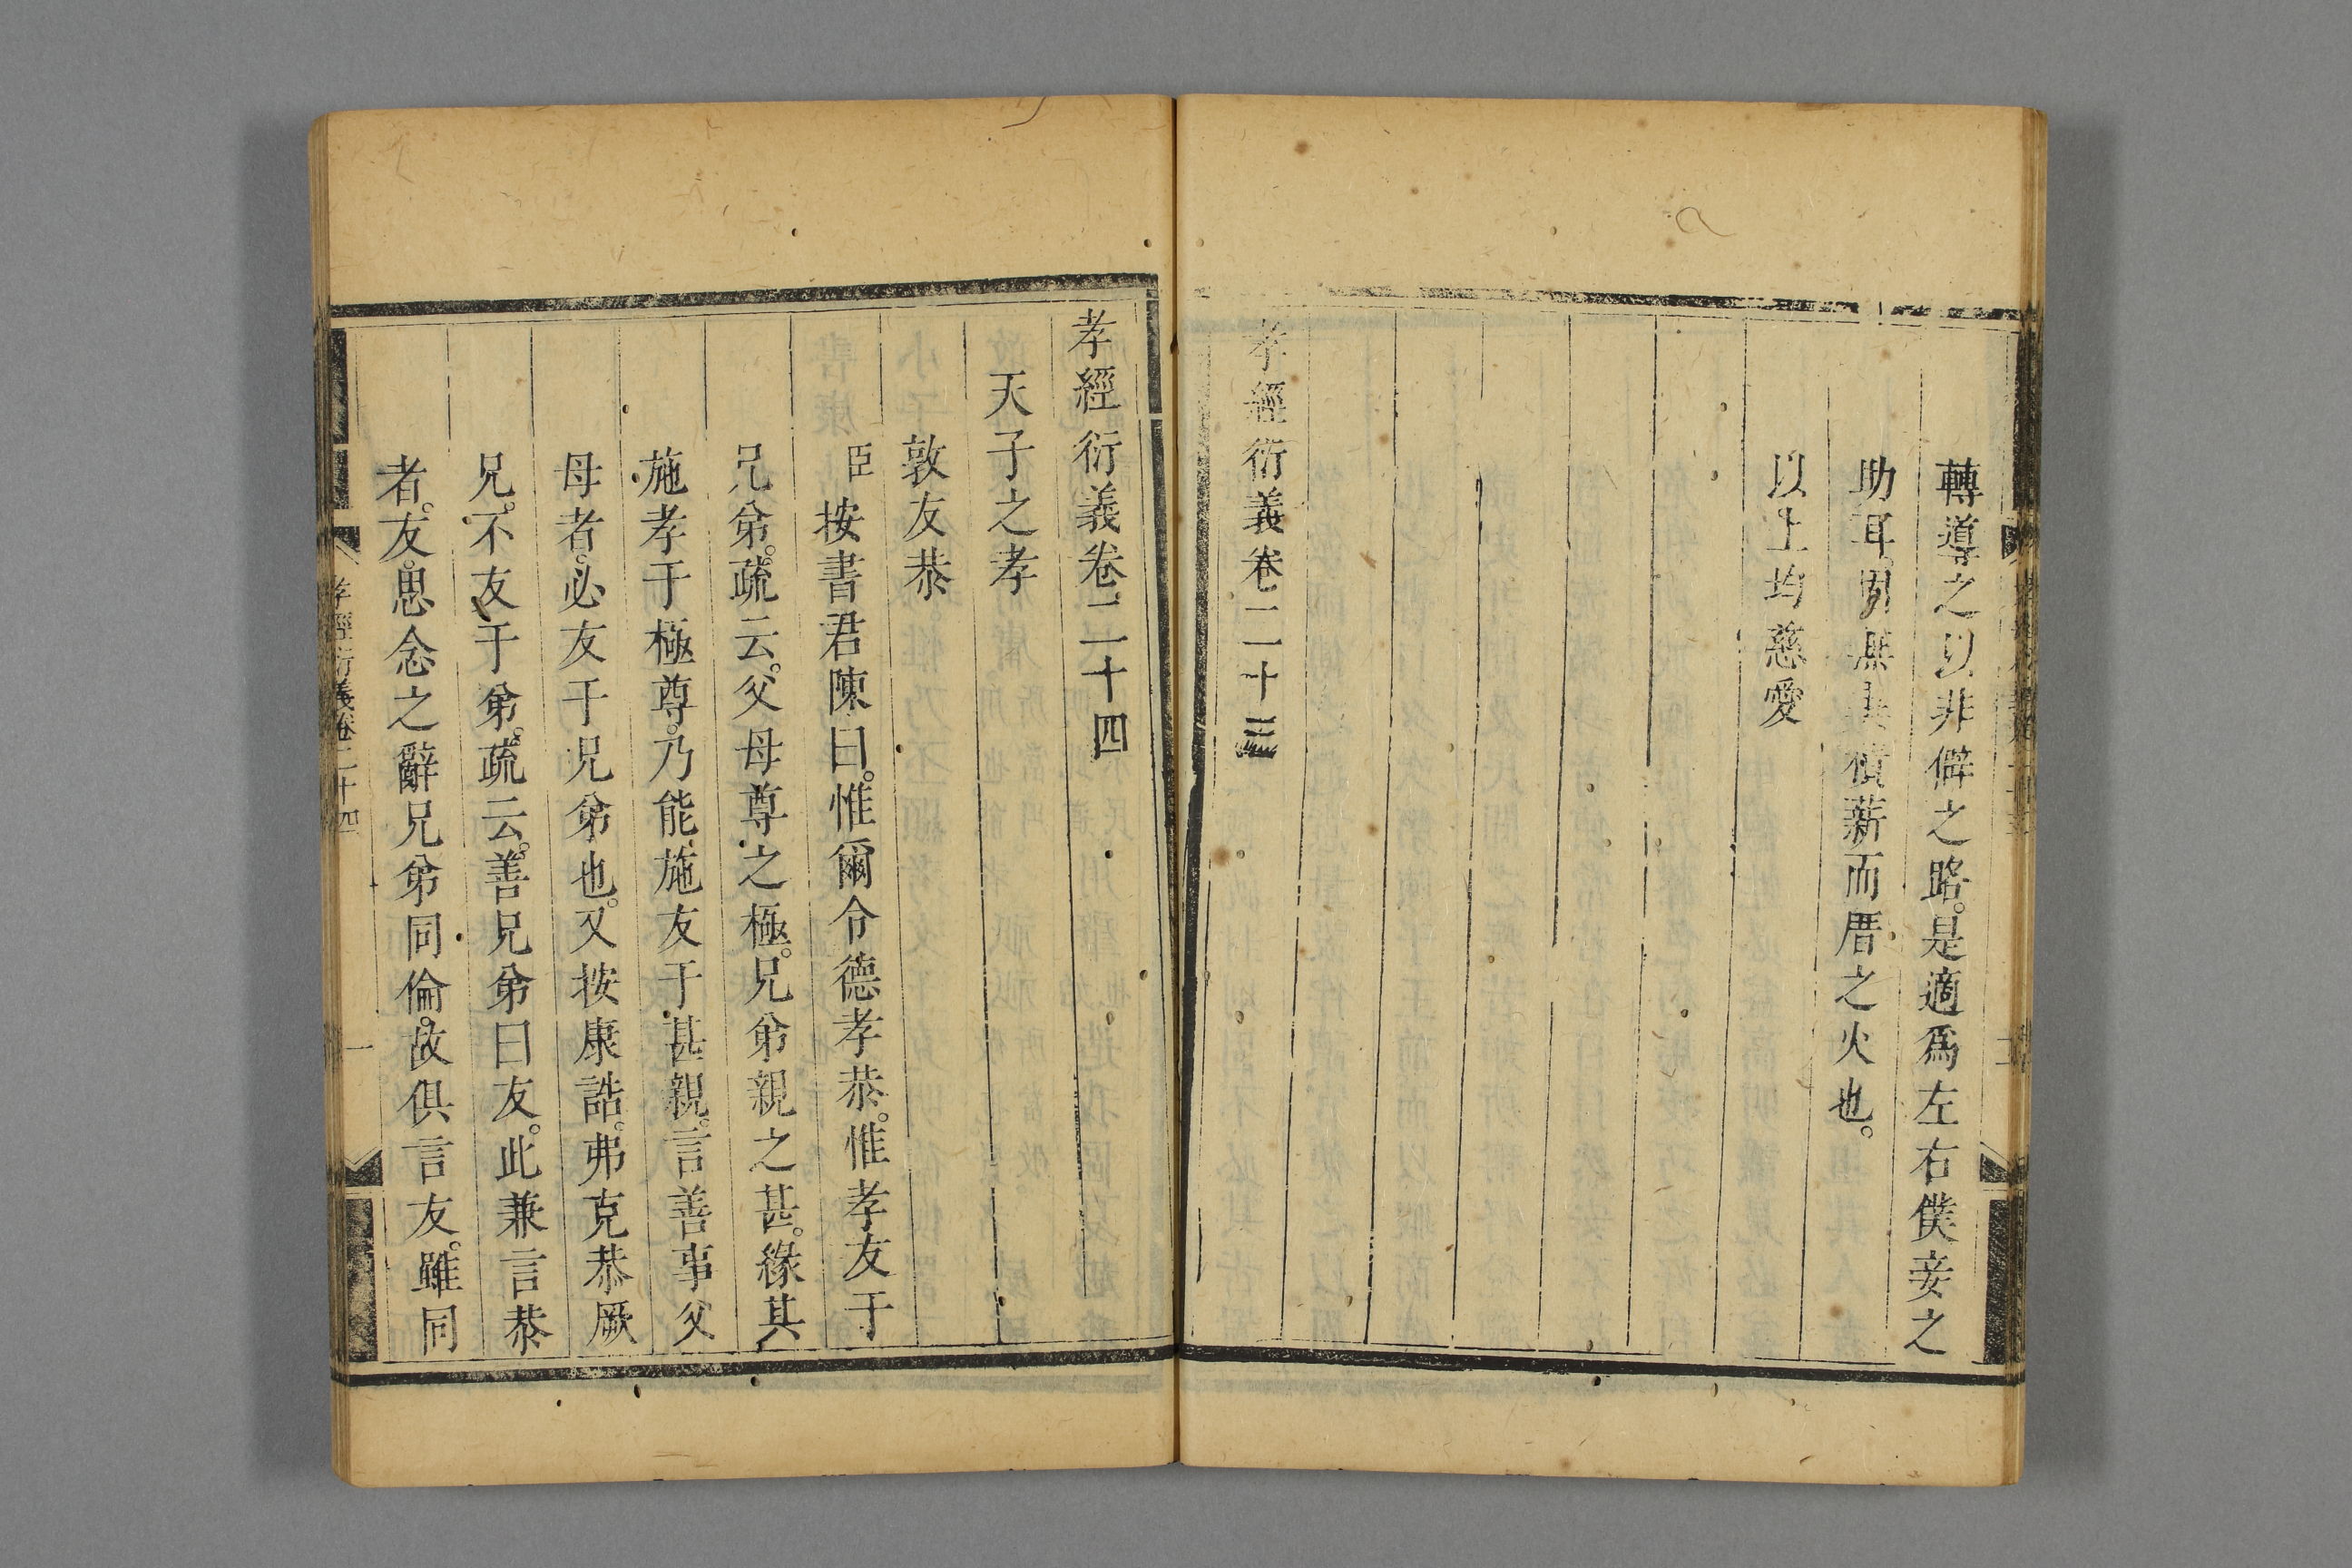 轉導之以非僻之路。是適爲左右僕妾之
助耳。別無異積薪而厝之火也。
以上均慈愛
孝經衍義卷二十三
孝經衍義卷二十四
天子之孝
敦友恭
臣按書君陳曰。惟爾令德孝恭。惟孝友于
兄弟。疏云。父母尊之極。兄弟親之甚。緣其
施孝于極尊。乃能施友于甚親。言善事父
母者。必友于兄弟也。又按康誥。弗克恭厥
兄。不友于弟。疏云。善兄弟曰友。此兼言恭
者。友。思念之辭。兄弟同倫。故俱言友。雖同
孝經衍義卷二十四
一